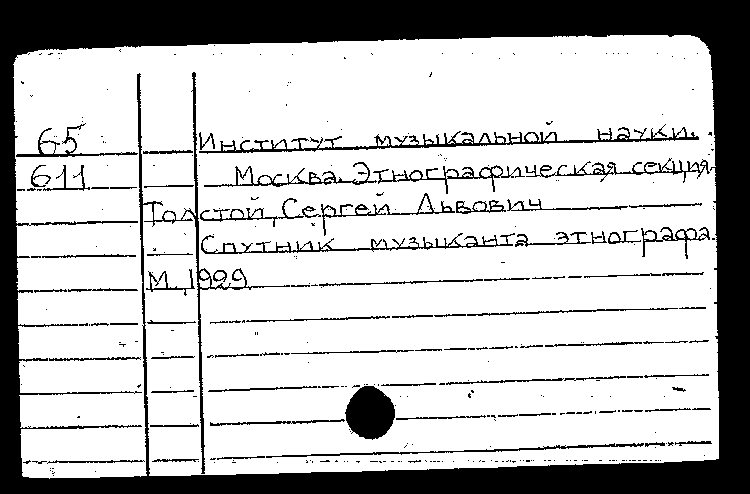 65 Институт музыкальной науки.
611 Москва. Этнографическая секция
Толстой, Сергей Львович
Спутник музыканта этнографа.
М., 1929